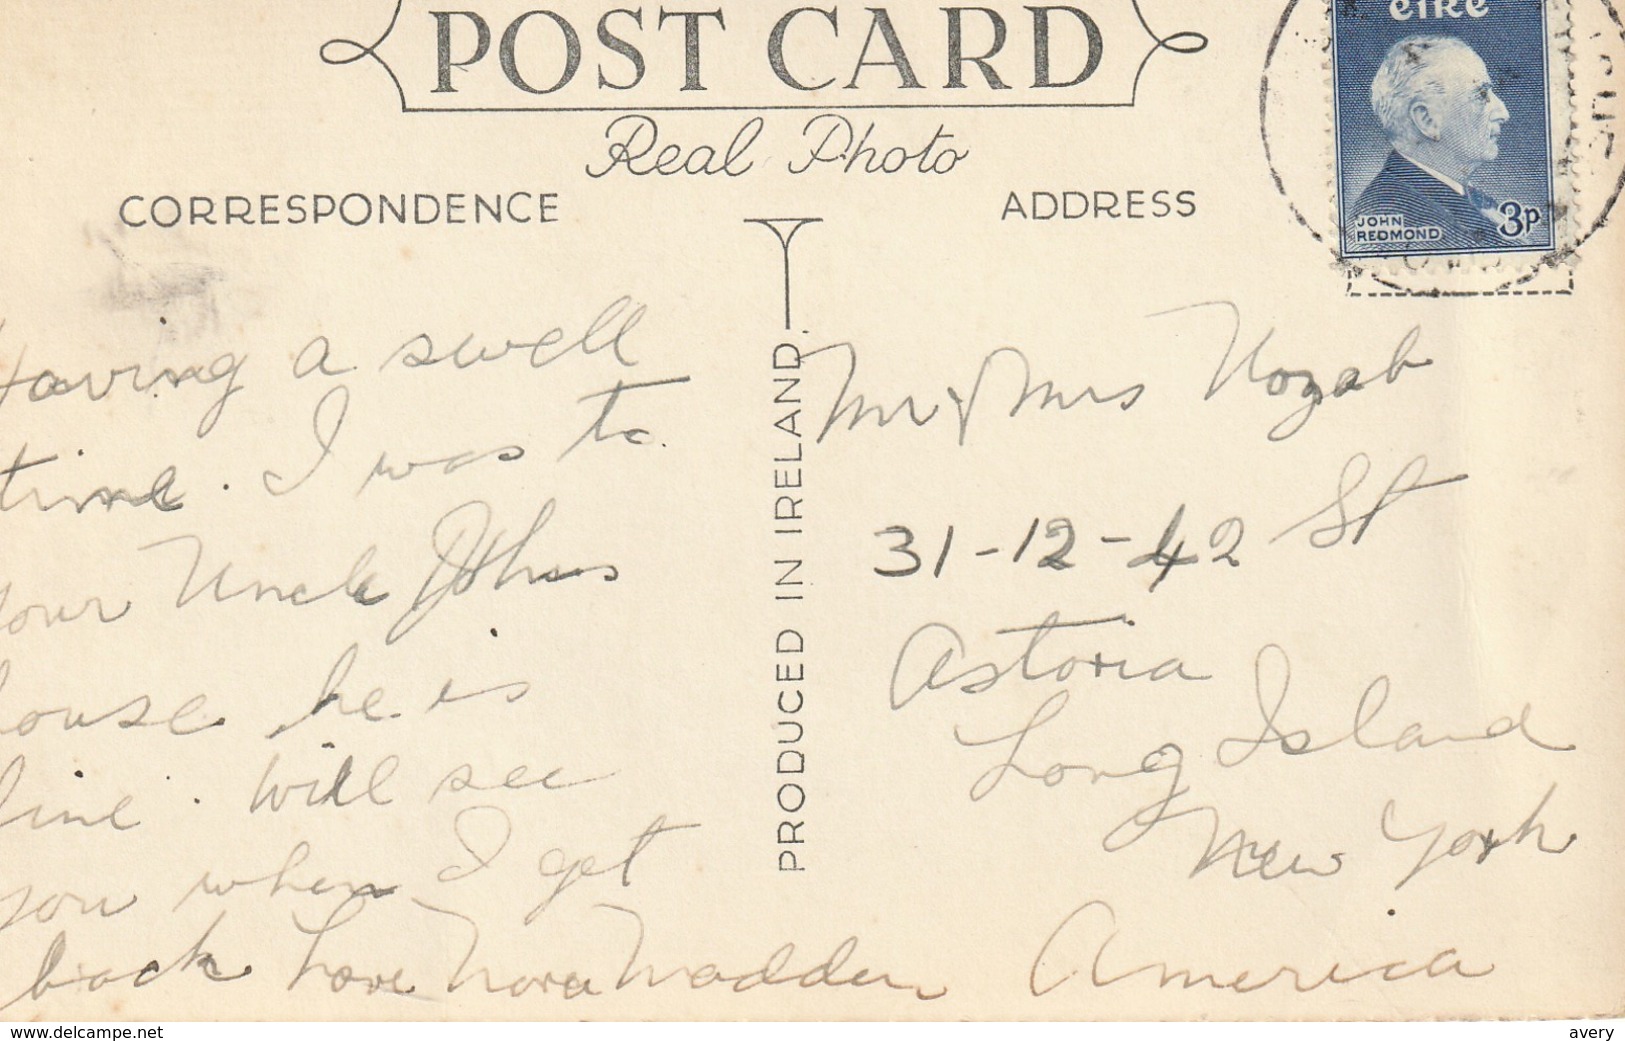 POST CARD
Real Photo
CORRESPONDENCE
ADDRESS
éire
JOHN
REDMOND
3p
PRODUCED IN IRELAND
Having a swell
time. I was to
your Uncle Johns
house he is
fine. Will see
you when I get
back Love Nora Madden
Mr & Mrs
31-12-42 St
Astoria
Long Island
New York
America
www.delcampe.net
avery